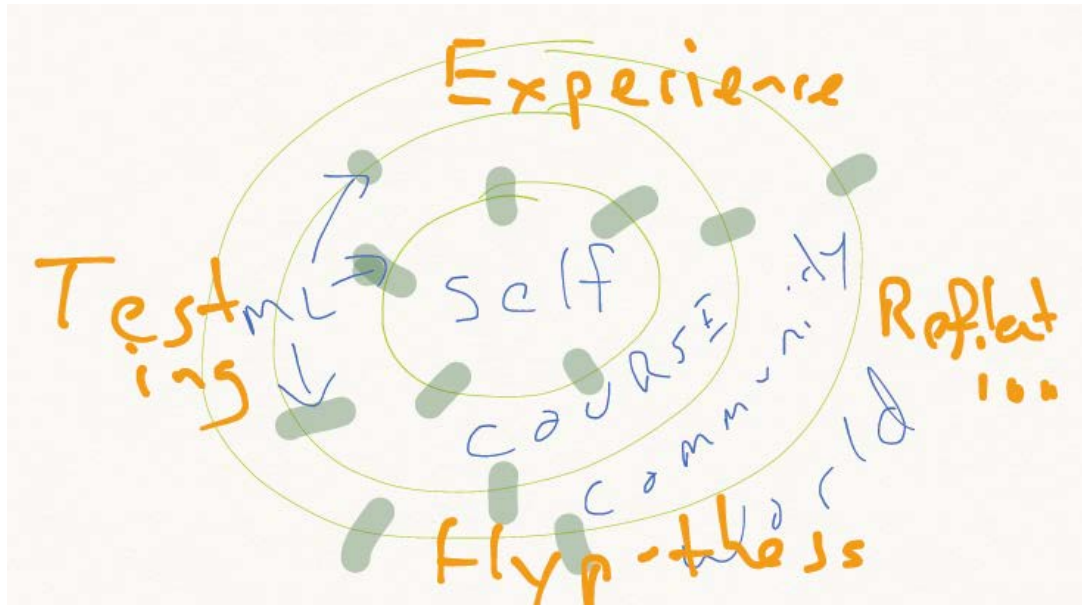 Experience
Self
Test
ing
ML
COURSE
Community
World
Reflect
ion
Hypothess